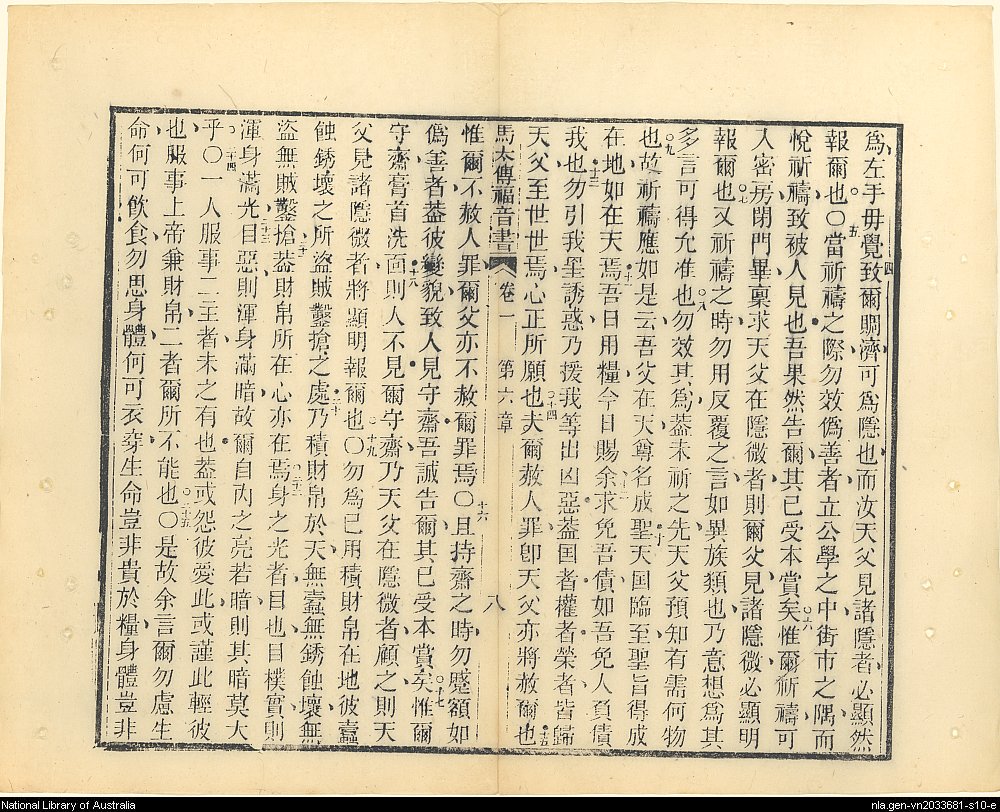 為左手毋覺致爾賙濟可為隱也而汝天父見諸隱者必顯然
報爾也○當祈禱之際勿效偽善者立公學之中街市之隅而
悅祈禱致被人見也吾果然告爾其已受本賞矣惟爾祈禱可
入密房閉門畢稟求天父在隱微者則爾父見諸隱微必顯明
報爾也又祈禱之時勿用反覆之言如異族類也乃意想為其
多言可得允准也勿效其為蓋未祈之先天父預知有需何物
也故祈禱應如是云吾父在天尊名成聖天国臨至聖旨得成
在地如在天焉吾日用糧今日賜余求免吾債如吾免人負債
我也勿引我進誘惑乃援我等出凶惡蓋国者權者榮者皆歸
天父至世世焉心正所願也夫爾赦人罪卽天父亦將赦爾也
馬太傳福音書 卷一 第六章 八
惟爾不赦人罪爾父亦不赦爾罪焉○且持齋之時勿蹙額如
偽善者蓋彼變貌致人見守齋吾誠告爾其已受本賞矣惟爾
守齋膏首洗面則人不見爾守齋乃天父在隱微者顧之則天
父見諸隱微者將顯明報爾也○勿為己用積財帛在地彼蠹
蝕銹壞之所盜賊鑿搶之處乃積財帛於天無蠹無銹蝕壞無
盜無賊鑿搶蓋財帛所在心亦在焉身之光者目也目樸實則
渾身滿光目惡則渾身滿暗故爾自內之亮若暗則其暗莫大
乎○一人服事二主者未之有也蓋或怨彼愛此或謹此輕彼
也服事上帝兼財帛二者爾所不能也○是故余言爾勿慮生
命何可飲食勿思身體何可衣穿生命豈非貴於糧身體豈非
National Library of Australia
nla.gen-vn2033681-s10-e